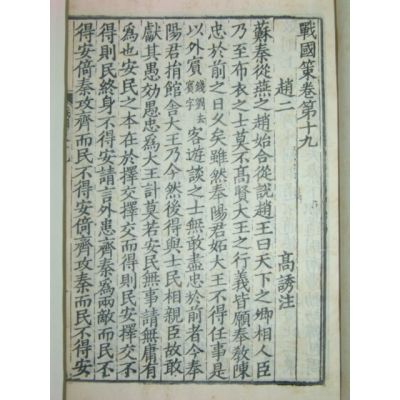 戰國策卷第十九
趙二　高誘注
蘇秦從燕之趙始合從說趙王曰天下之卿相人臣
乃至布衣之士莫不高賢大王之行義皆願奉教陳
忠於前之日久矣雖然奉陽君妬大王不得任事是
以外賓客遊談之士無敢盡忠於前者今奉
陽君捐館舍大王乃今然後得與士民相親臣故敢
獻其愚效愚忠為大王計莫若安民無事請無庸有
為也安民之本在於擇交擇交而得則民安擇交不
得則民終身不得安請言外患齊秦為兩敵而民不
得安倚秦攻齊而民不得安倚齊攻秦而民不得安